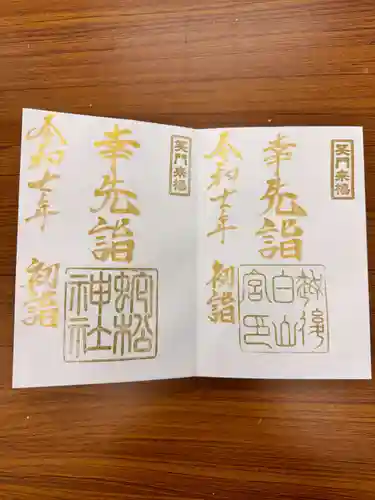 笑門来福
幸先詣
令和七年
初詣
蛇松神社
笑門来福
幸先詣
令和七年
初詣
越後白山宮印